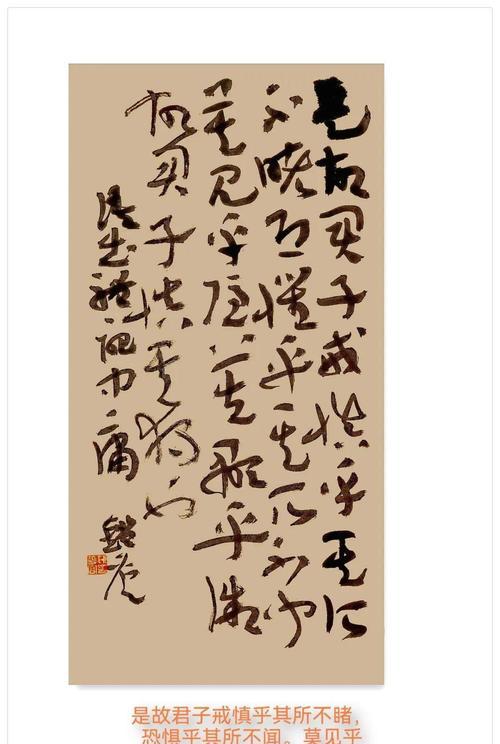 是故君子戒慎乎其所
不睹恐懼乎其所不聞
莫見乎隱莫顯乎微
故君子慎其獨也
語出禮記中庸
是故君子戒慎乎其所不睹，
恐惧乎其所不闻。莫见乎